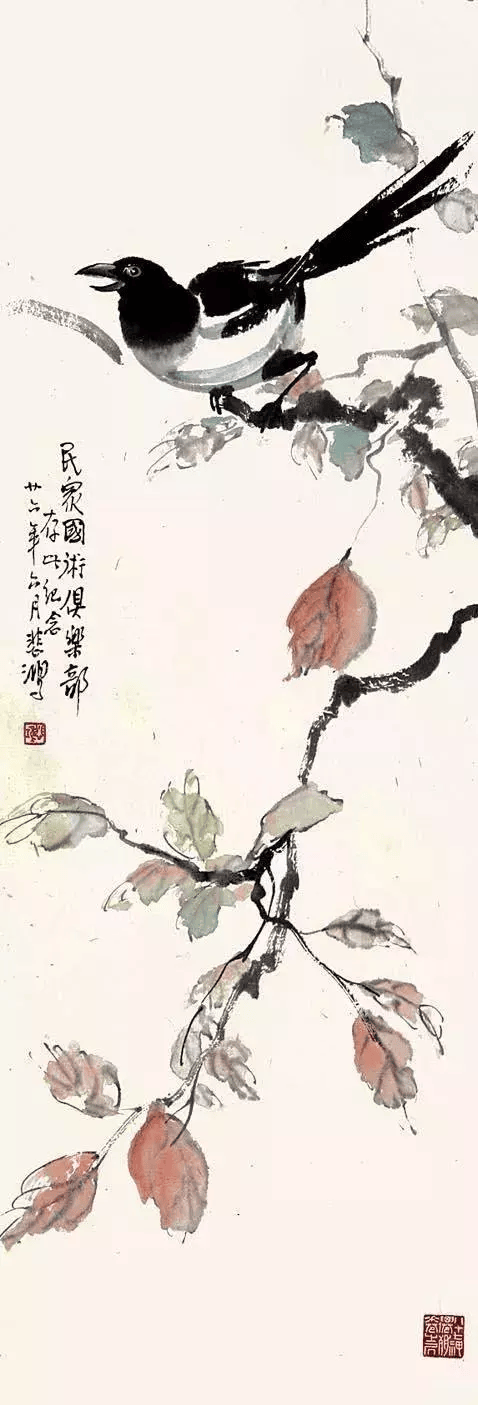 民众國術俱樂部
存此纪念
廿六年六月悲鴻